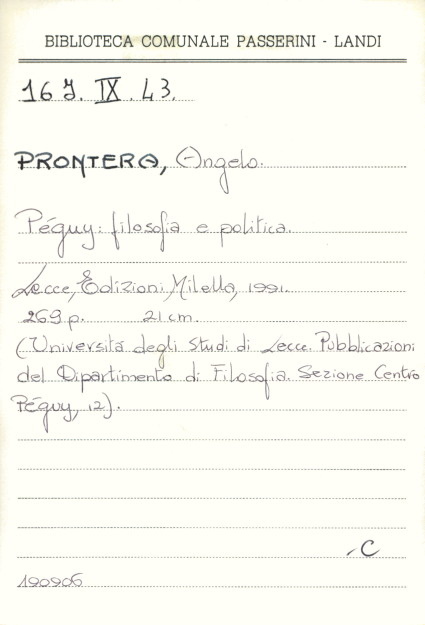 BIBLIOTECA COMUNALE PASSERINI - LANDI
16 J. IX. 43.
PRONTERA, Angelo.
Péguy: filosofia e politica.
Lecce, Edizioni Milella, 1991.
269 p. 21 cm.
(Università degli Studi di Lecce. Pubblicazioni
del Dipartimento di Filosofia. Sezione Centro
Péguy, 12).
C
190906